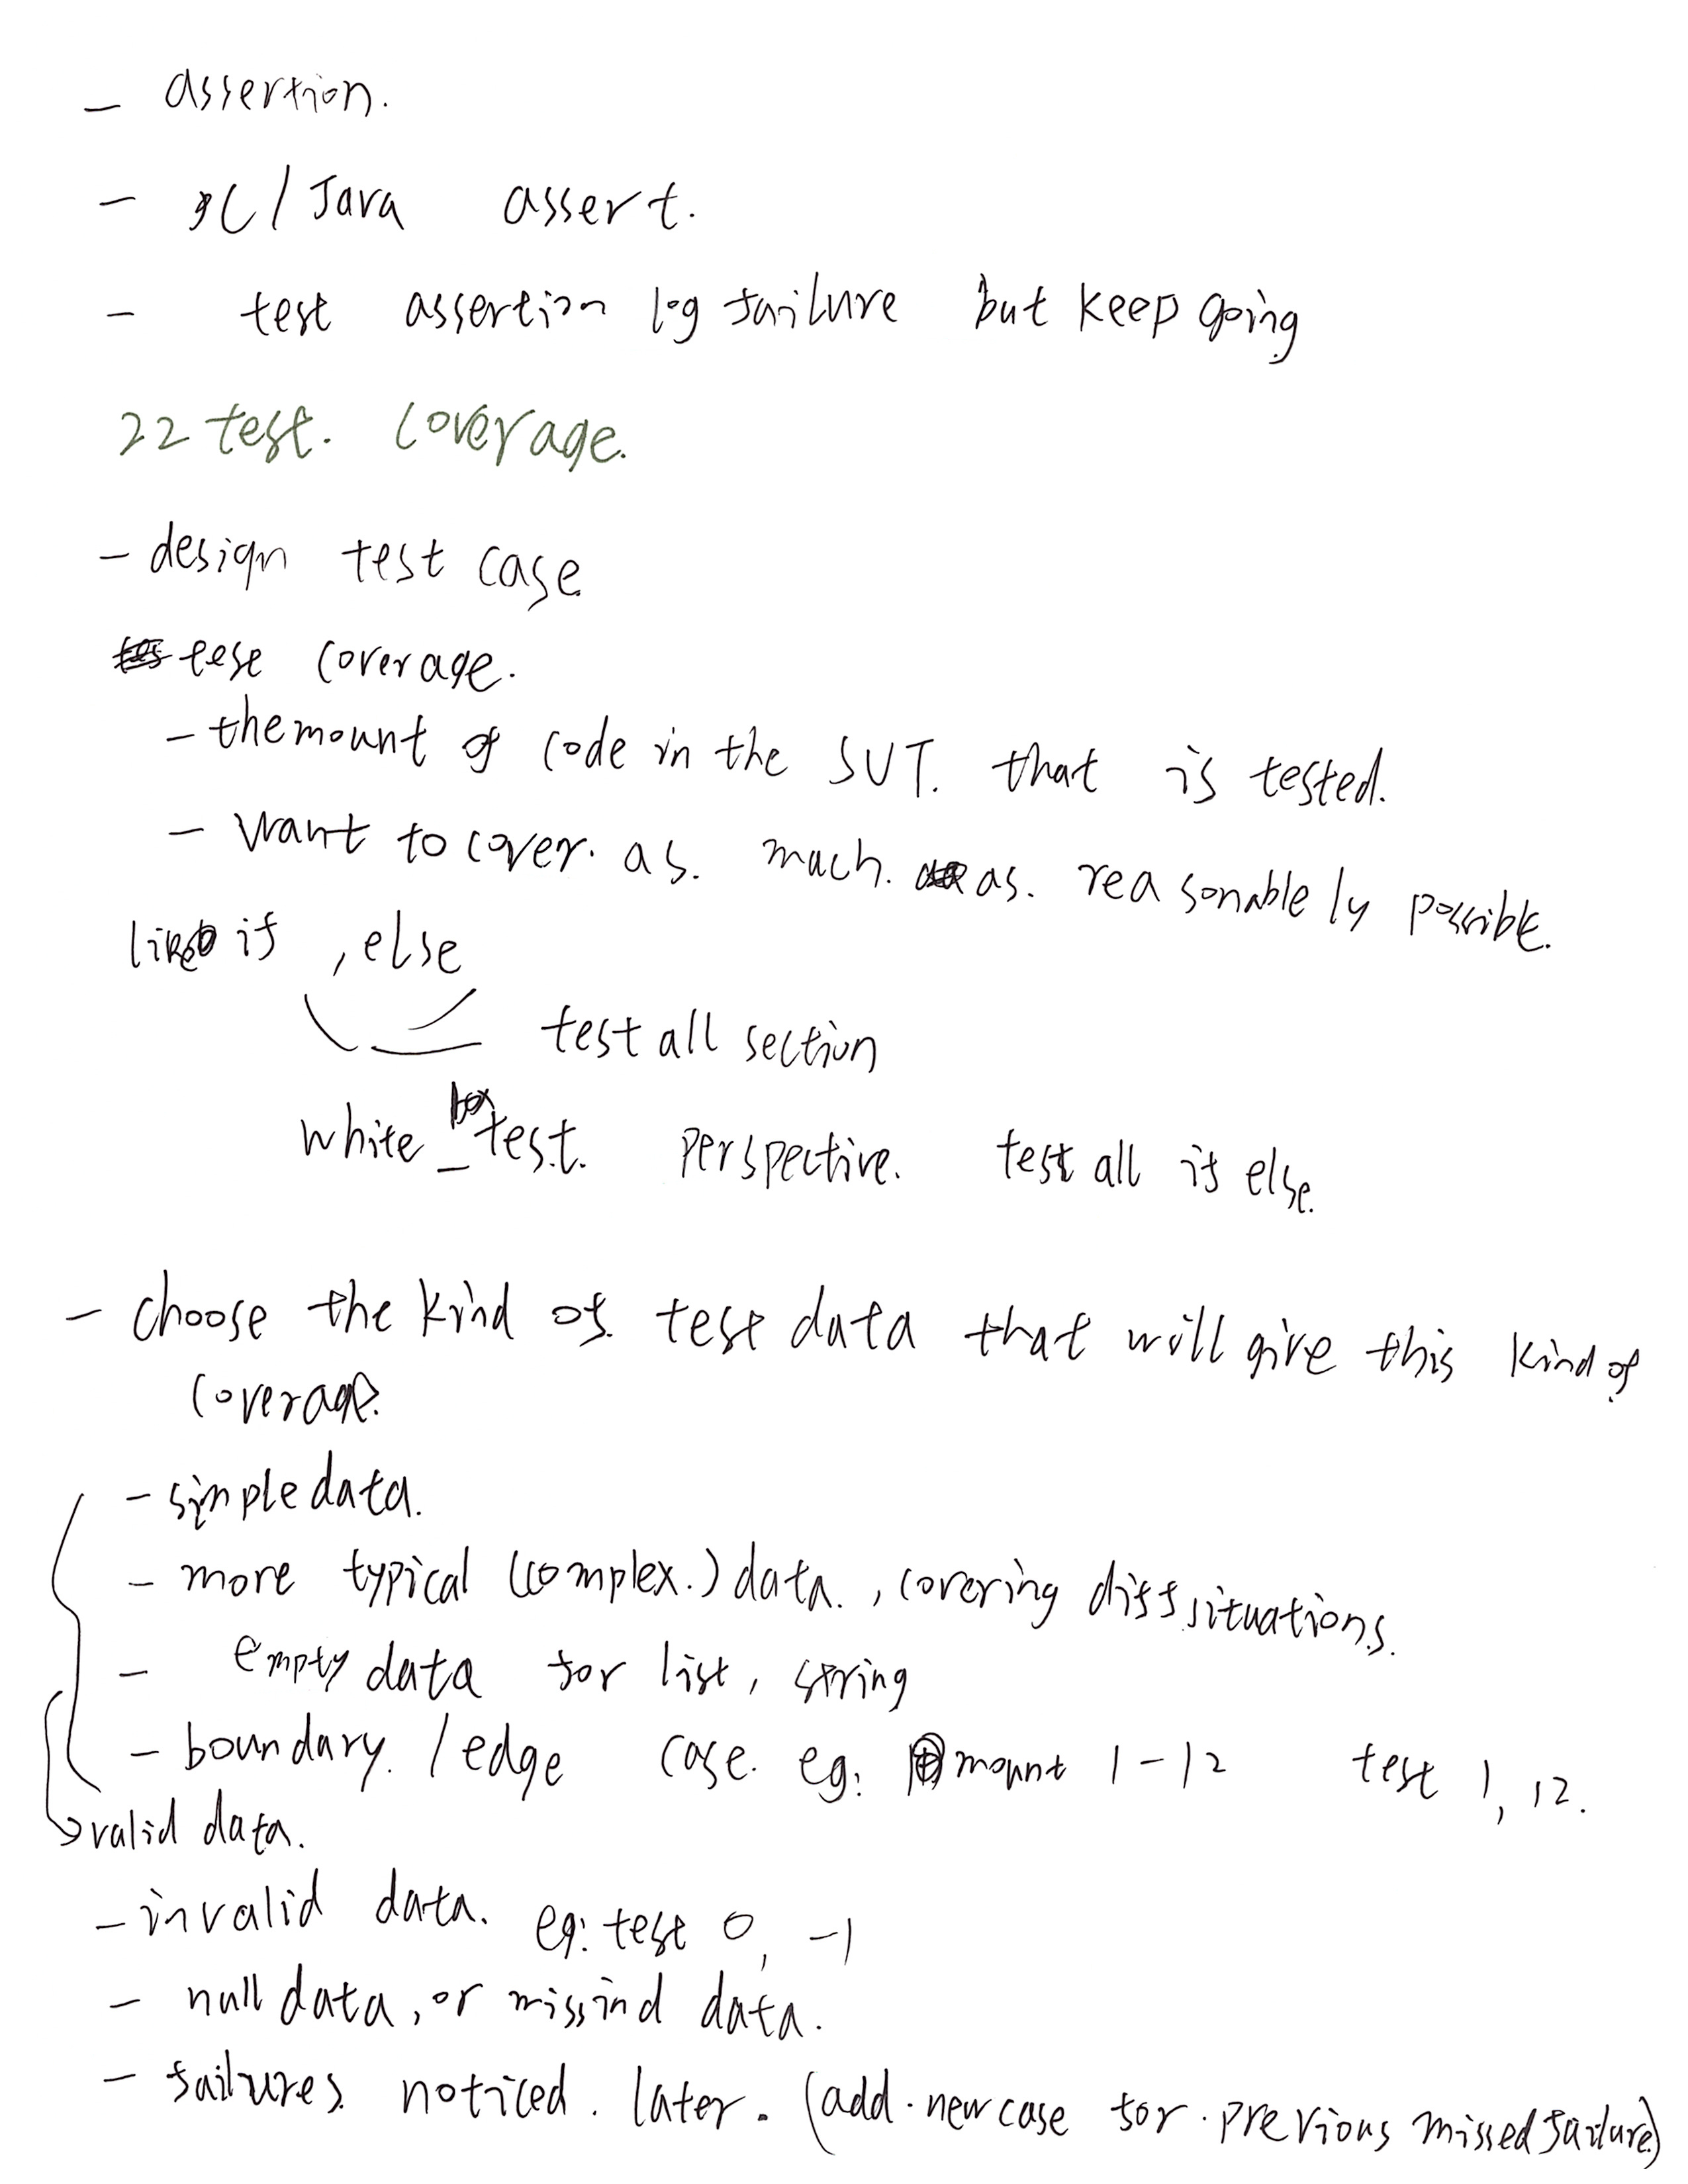 - assertion.
- C/Java assert.
- test assertion log failure but keep going
22 test. coverage.
- design test case
test coverage.
- the mount of code in the SUT. that is tested.
- want to cover. as. much. as. reasonablely possible.
like if , else
test all section
white_box test. perspective. test all if else.
- choose the kind of. test data that will give this kind of
coverage.
- simple data.
- more typical (complex.) data. , covering diff situations.
- empty data for list, string
- boundary. / edge case. eg: mount 1-12 test 1, 12.
→ valid data.
- invalid data. eg: test 0, -1
- null data, or missind data.
- failures. noticed. later. (add. new case for. previous missed failure)